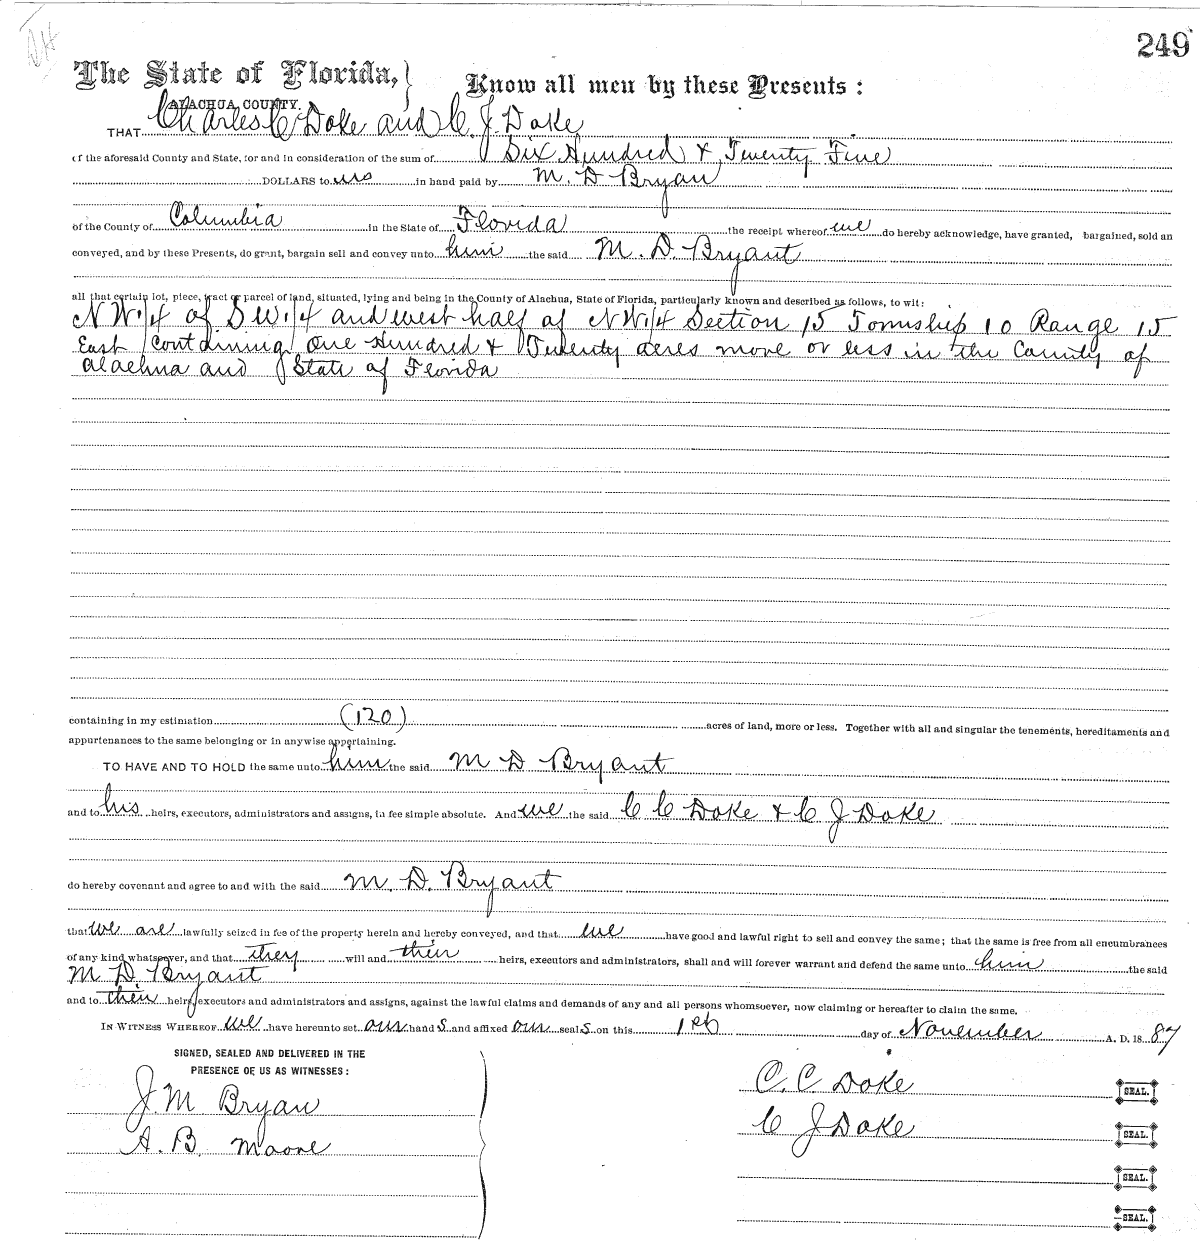 249
The State of Florida,
ALACHUA COUNTY.
Know all men by these Presents:
THAT Charles C Doke and C. J. Doke
of the aforesaid County and State, for and in consideration of the sum of Six Hundred & Twenty Five
DOLLARS to us in hand paid by M. D Bryan
of the County of Columbia in the State of Florida the receipt whereof we do hereby acknowledge, have granted, bargained, sold an
conveyed, and by these Presents, do grant, bargain sell and convey unto him the said M. D. Bryant
all that certain lot, piece, tract or parcel of land, situated, lying and being in the County of Alachua, State of Florida, particularly known and described as follows, to wit:
N W 1/4 of S W 1/4 and west half of N W 1/4 Section 15 Township 10 Range 15
East containing One Hundred & Twenty acres more or less in the County of
Alachua and State of Florida
containing in my estimation (120) acres of land, more or less. Together with all and singular the tenements, hereditaments and
appurtenances to the same belonging or in anywise appertaining.
TO HAVE AND TO HOLD the same unto him the said M D Bryant
and to his heirs, executors, administrators and assigns, in fee simple absolute. And we the said C C Doke & C J Doke
do hereby covenant and agree to and with the said M. D. Bryant
that we are lawfully seized in fee of the property herein and hereby conveyed, and that we have good and lawful right to sell and convey the same; that the same is free from all encumbrances
of any kind whatsoever, and that they will and their heirs, executors and administrators, shall and will forever warrant and defend the same unto him the said
M D Bryant
and to their heirs, executors and administrators and assigns, against the lawful claims and demands of any and all persons whomsoever, now claiming or hereafter to claim the same.
IN WITNESS WHEREOF we have hereunto set our hands and affixed our seals on this 1st day of November A. D. 1887
SIGNED, SEALED AND DELIVERED IN THE
PRESENCE OF US AS WITNESSES:
J. M Bryan
A. B. Moore
C. C. Doke SEAL.
C J Doke SEAL.
SEAL.
SEAL.